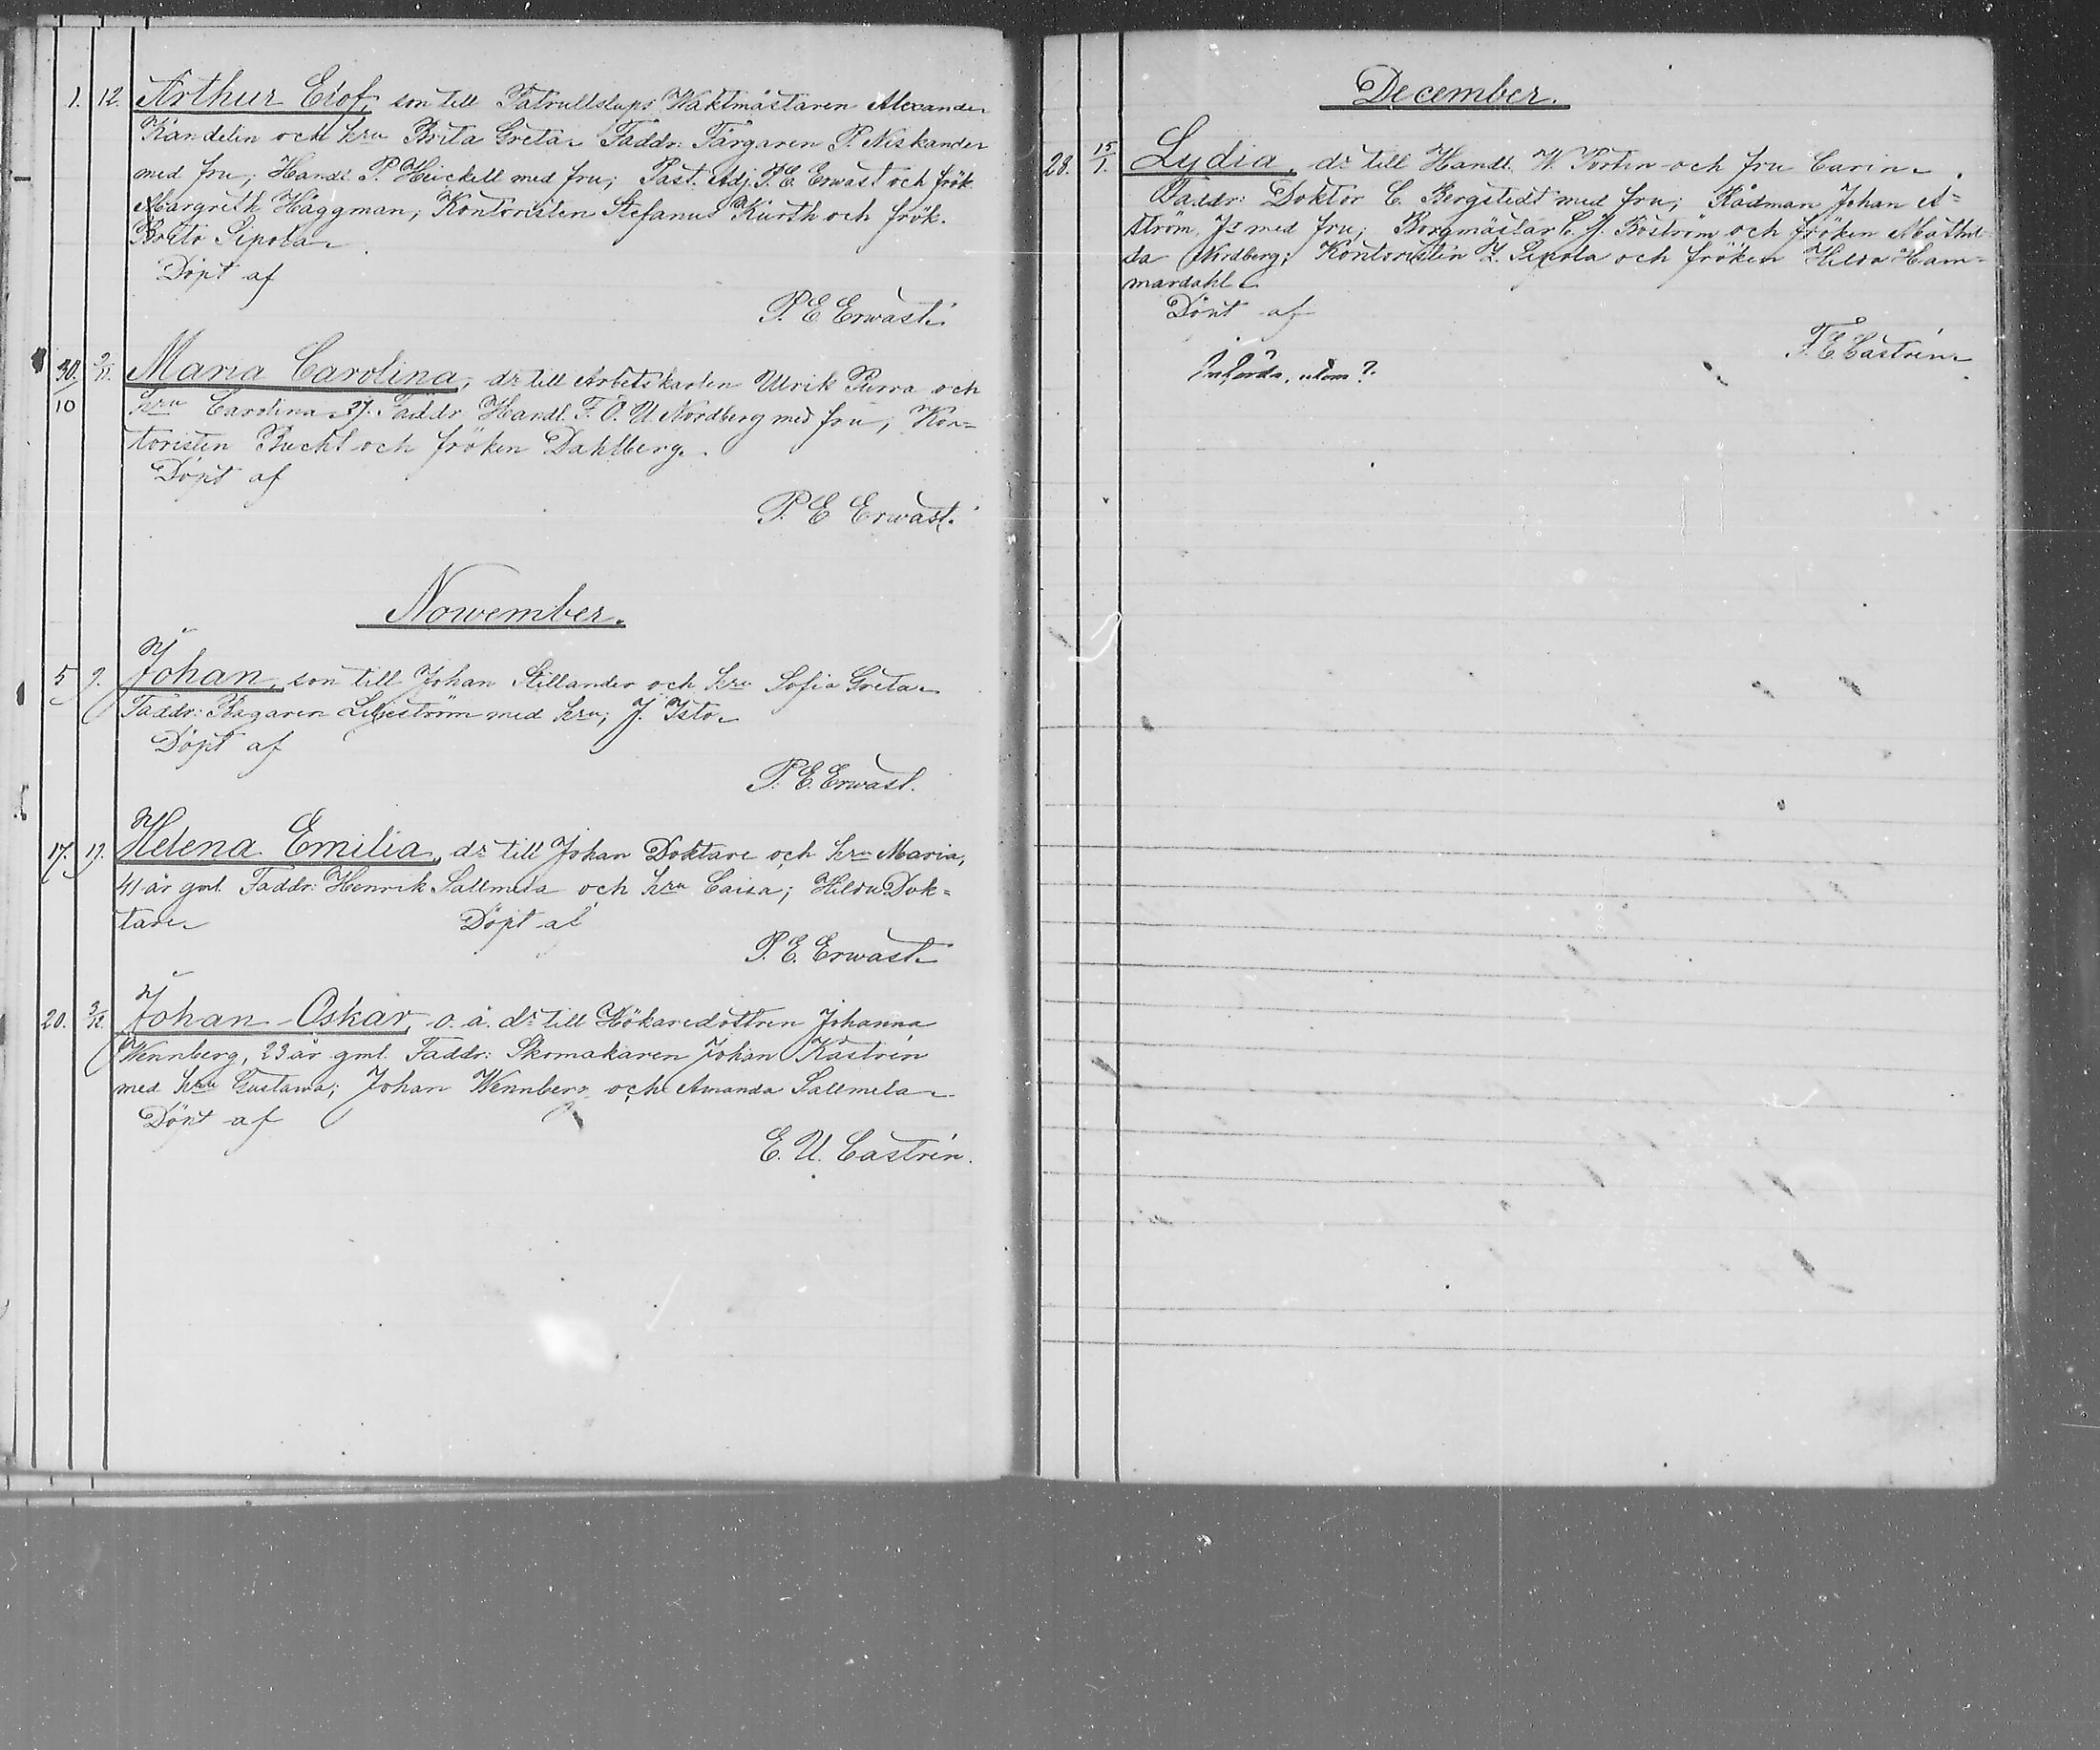 1. 12. Arthur Elof, son till Patrullskaps Waktmästaren Alexander
Kandelin och hru Brita Greta. Faddr: Färgaren P. Niskander
med fru; Handl. P. Heickell med fru; Past. Adj. P. E. Erwast och frök.
Margreth Häggman; Kontoristen Stefanus Kurth och frök.
Sipola.
Döpt af
P. E. Erwast.
30/10 9/11. Maria Carolina, dr till Arbetskarlen Ulrik Purra och
hru Carolina 37. Faddr. Handl. F. O. U. Nordberg med fru; Kon=
toristen Bucht och fröken Dahlberg.
Döpt af
P. E. Erwast.
Nowember.
5 9. Johan, son till Johan Stillander och hru Sofia Greta.
Faddr: Bagaren Liljeström med hru; J. Isto.
Döpt af
P. E. Erwast.
17. 19. Helena Emilia, dr till Johan Doktare och hru Maria,
41 år gml. Faddr: Henrik Sallmela och hru Caisa; Hilda Dok=
tare. Döpt af
P. E. Erwast.
20. 3/12. Johan Oskar, o. ä. dr till Hökaredottren Johanna
Wennberg, 23 år gml. Faddr: Skomakaren Johan Kastrén
med hru Gustawa; Johan Wennberg och Amanda Sallmela.
Döpt af
E. U. Castrén.
December.
28. 15/1. Lydia, dr till Handl. W. Portin och fru Carin.
Faddr: Doktor C. Bergstedt med fru; Rådman Johan A=
ström, Jr med fru; Borgmästar C. J. Boström och fröken Mathil
da Nordberg; Kontoristen Z. Sipola och fröken Hilda Ham=
mardahl.
Döpt af
F. E. Castrén.
utom?